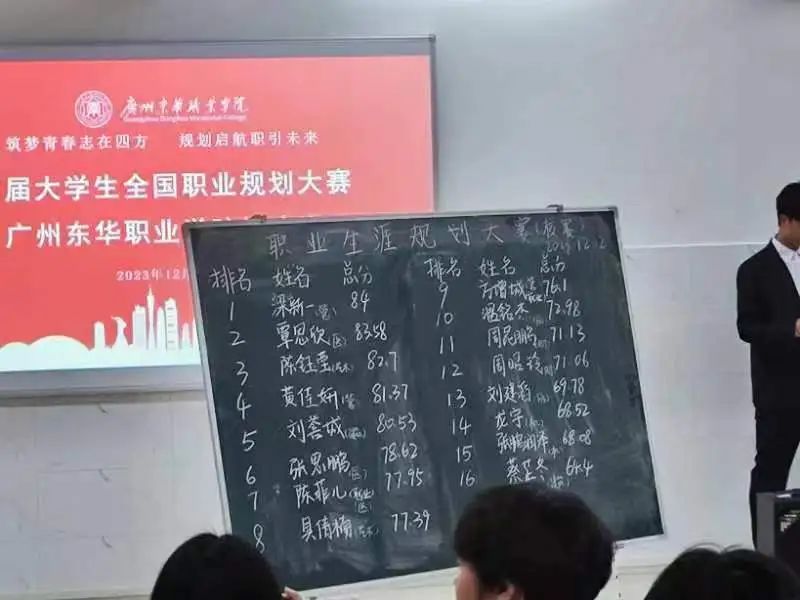 广州东华职业学院
Guangzhou Donghua Vocational College
筑梦青春志在四方 规划启航职引未来
届大学生全国职业规划大赛
广州东华职业学
2023年12月
职业生涯规划大赛
排名 姓名 总分
1 梁新一(管) 84
2 覃思欣(医) 83.58
3 陈钰雯 82.7
4 黄佳妍(管) 81.37
5 刘荟城 80.53
6 张思鹏(医) 78.62
7 陈菲儿 77.95
8 吴倩楠 77.39
排名 姓名 总分
9 方增城 76.1
10 温铭杰 72.98
11 周昆鹏 71.13
12 周明 71.06
13 刘建韬 69.78
14 龙宇 68.52
15 张鹏 68.08
16 蔡 64.4